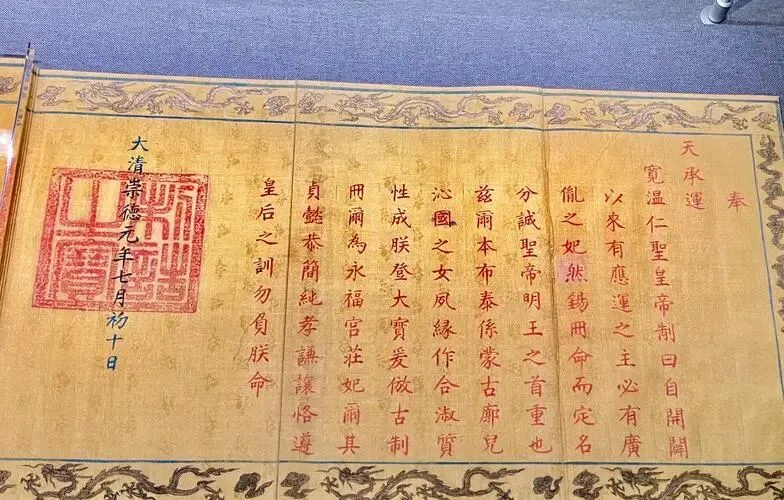 奉
天承運
寬温仁聖皇帝制曰自開闢
以來有應運之主必有廣
胤之妃然錫冊命而定名
分誠聖帝明王之首重也
兹爾本布泰係蒙古廓兒
沁國之女夙緣作合淑質
性成朕登大寶爰倣古制
冊爾為永福宮莊妃爾其
貞懿恭簡純孝謙讓恪遵
皇后之訓勿負朕命
大清崇德元年七月初十日
制誥
之寶